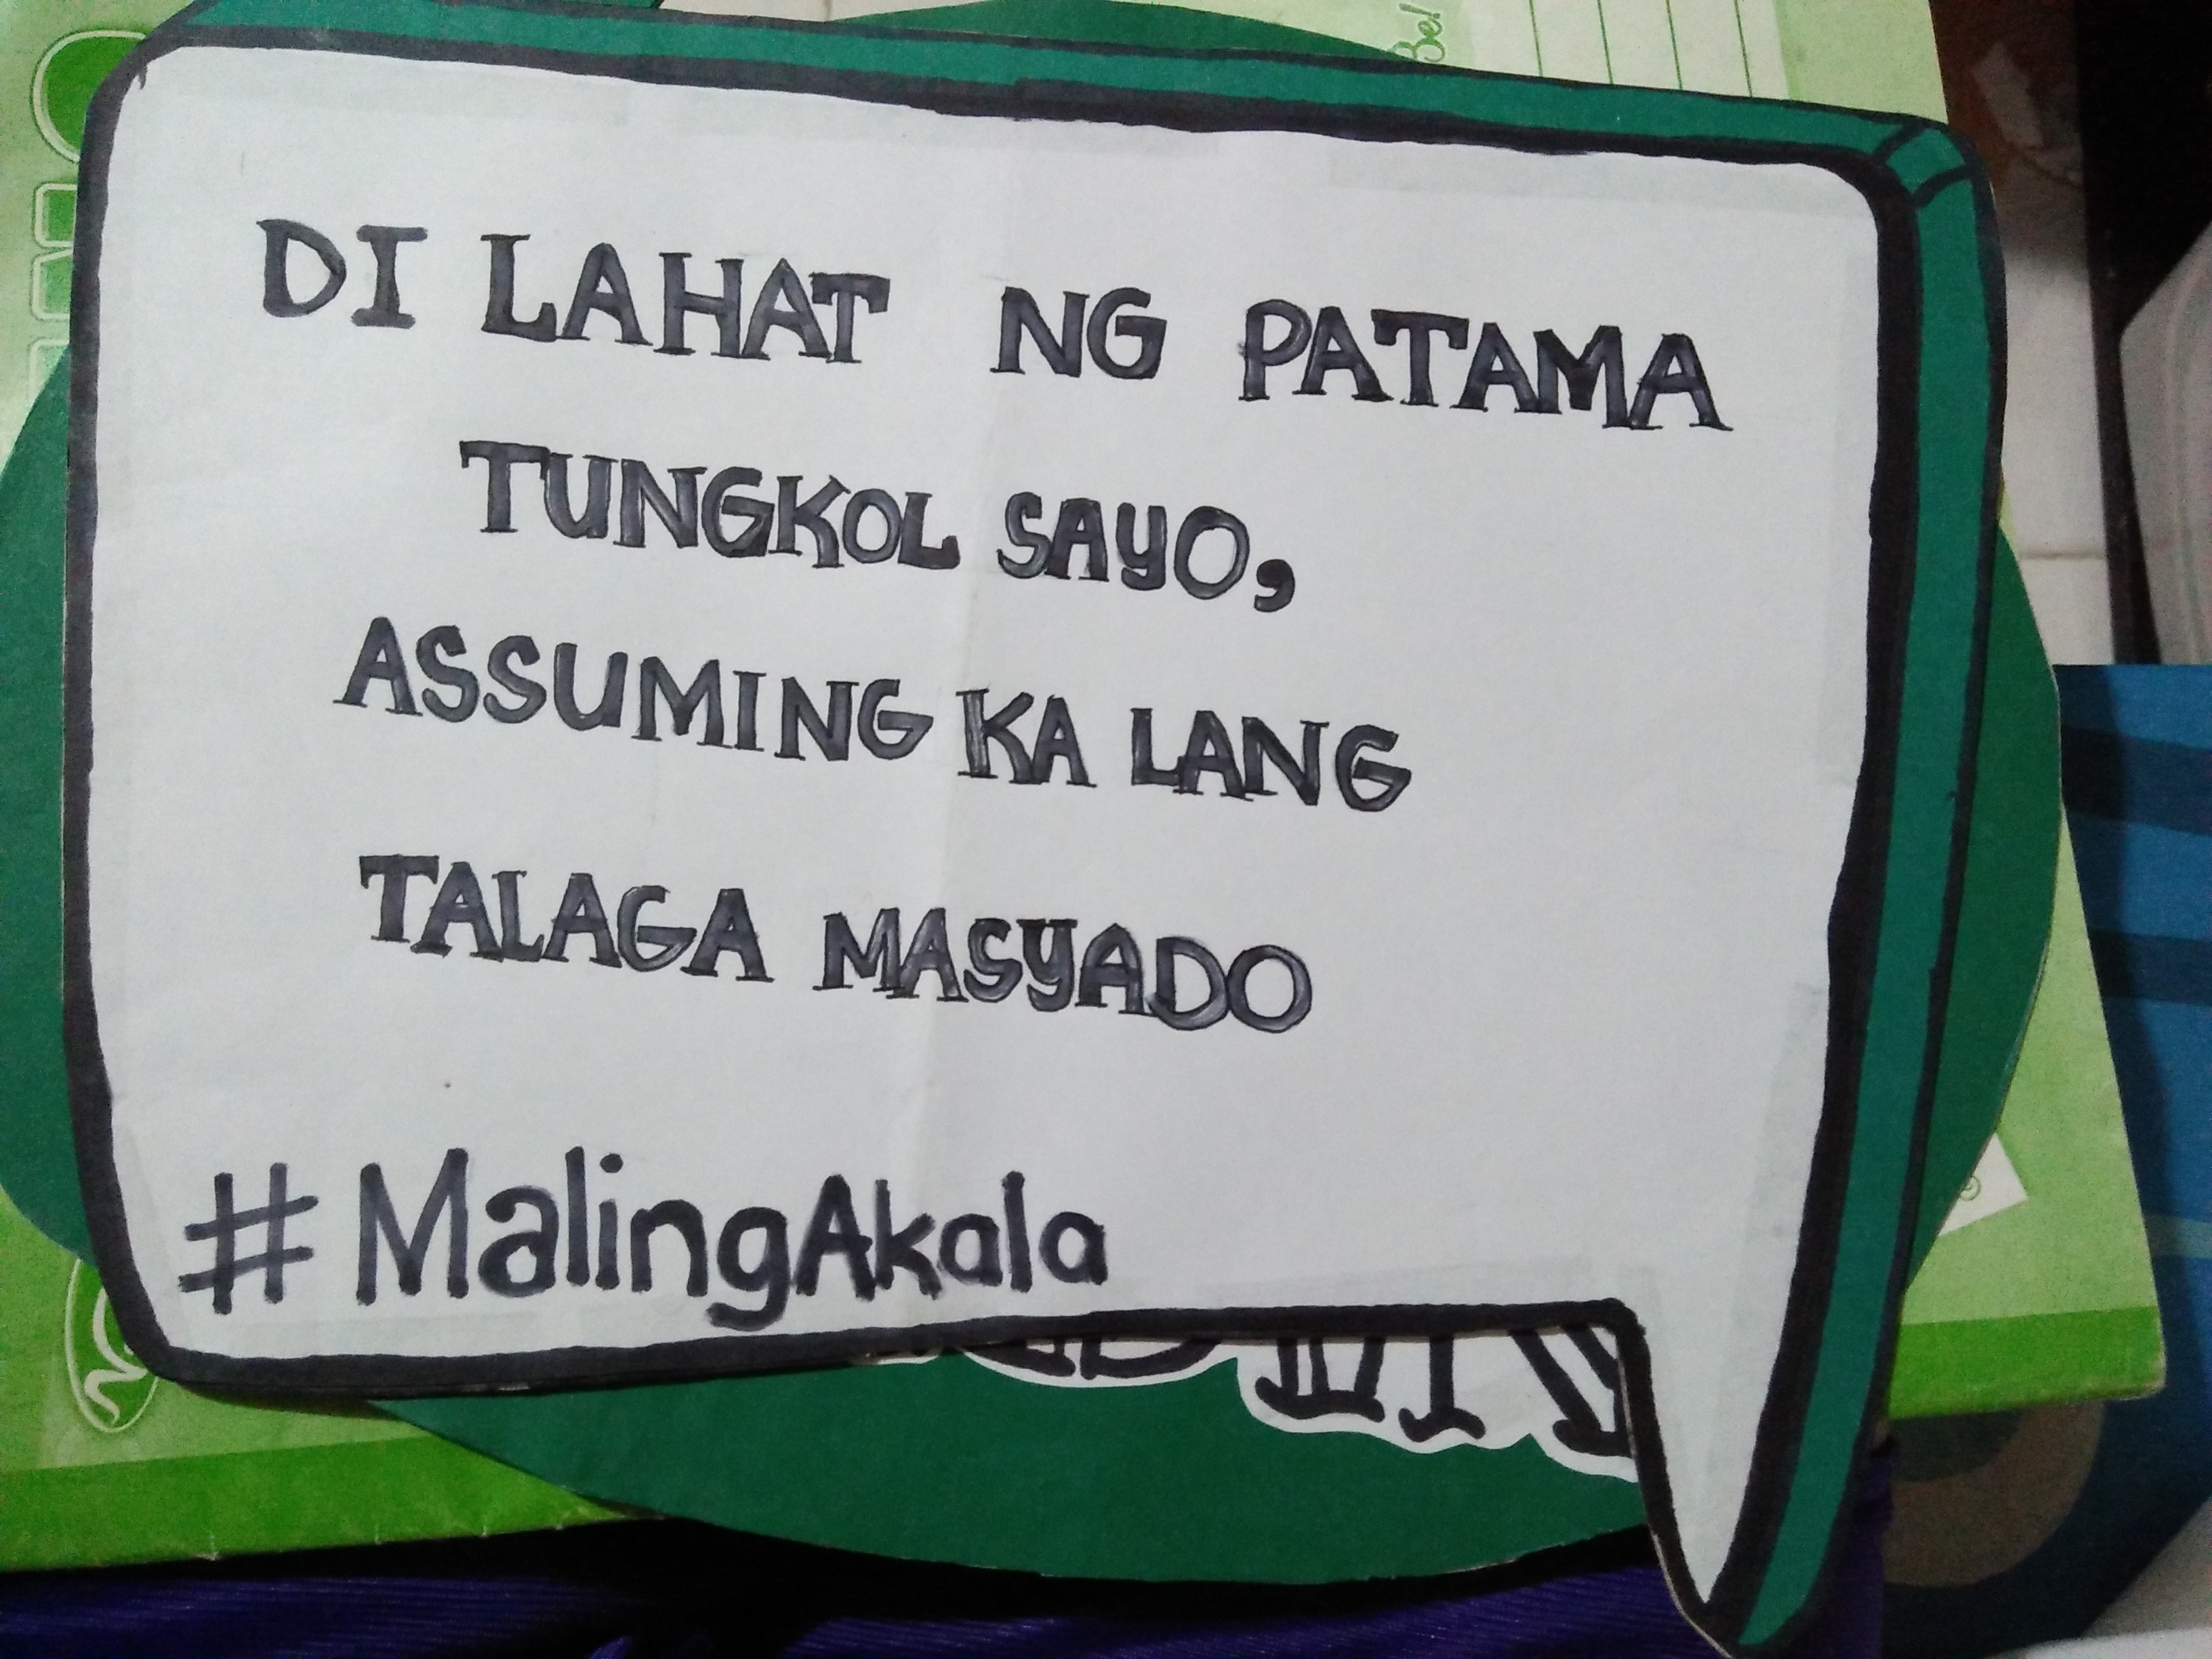 Be!
DI LAHAT NG PATAMA
TUNGKOL SAYO,
ASSUMING KA LANG
TALAGA MASYADO
#MalingAkala